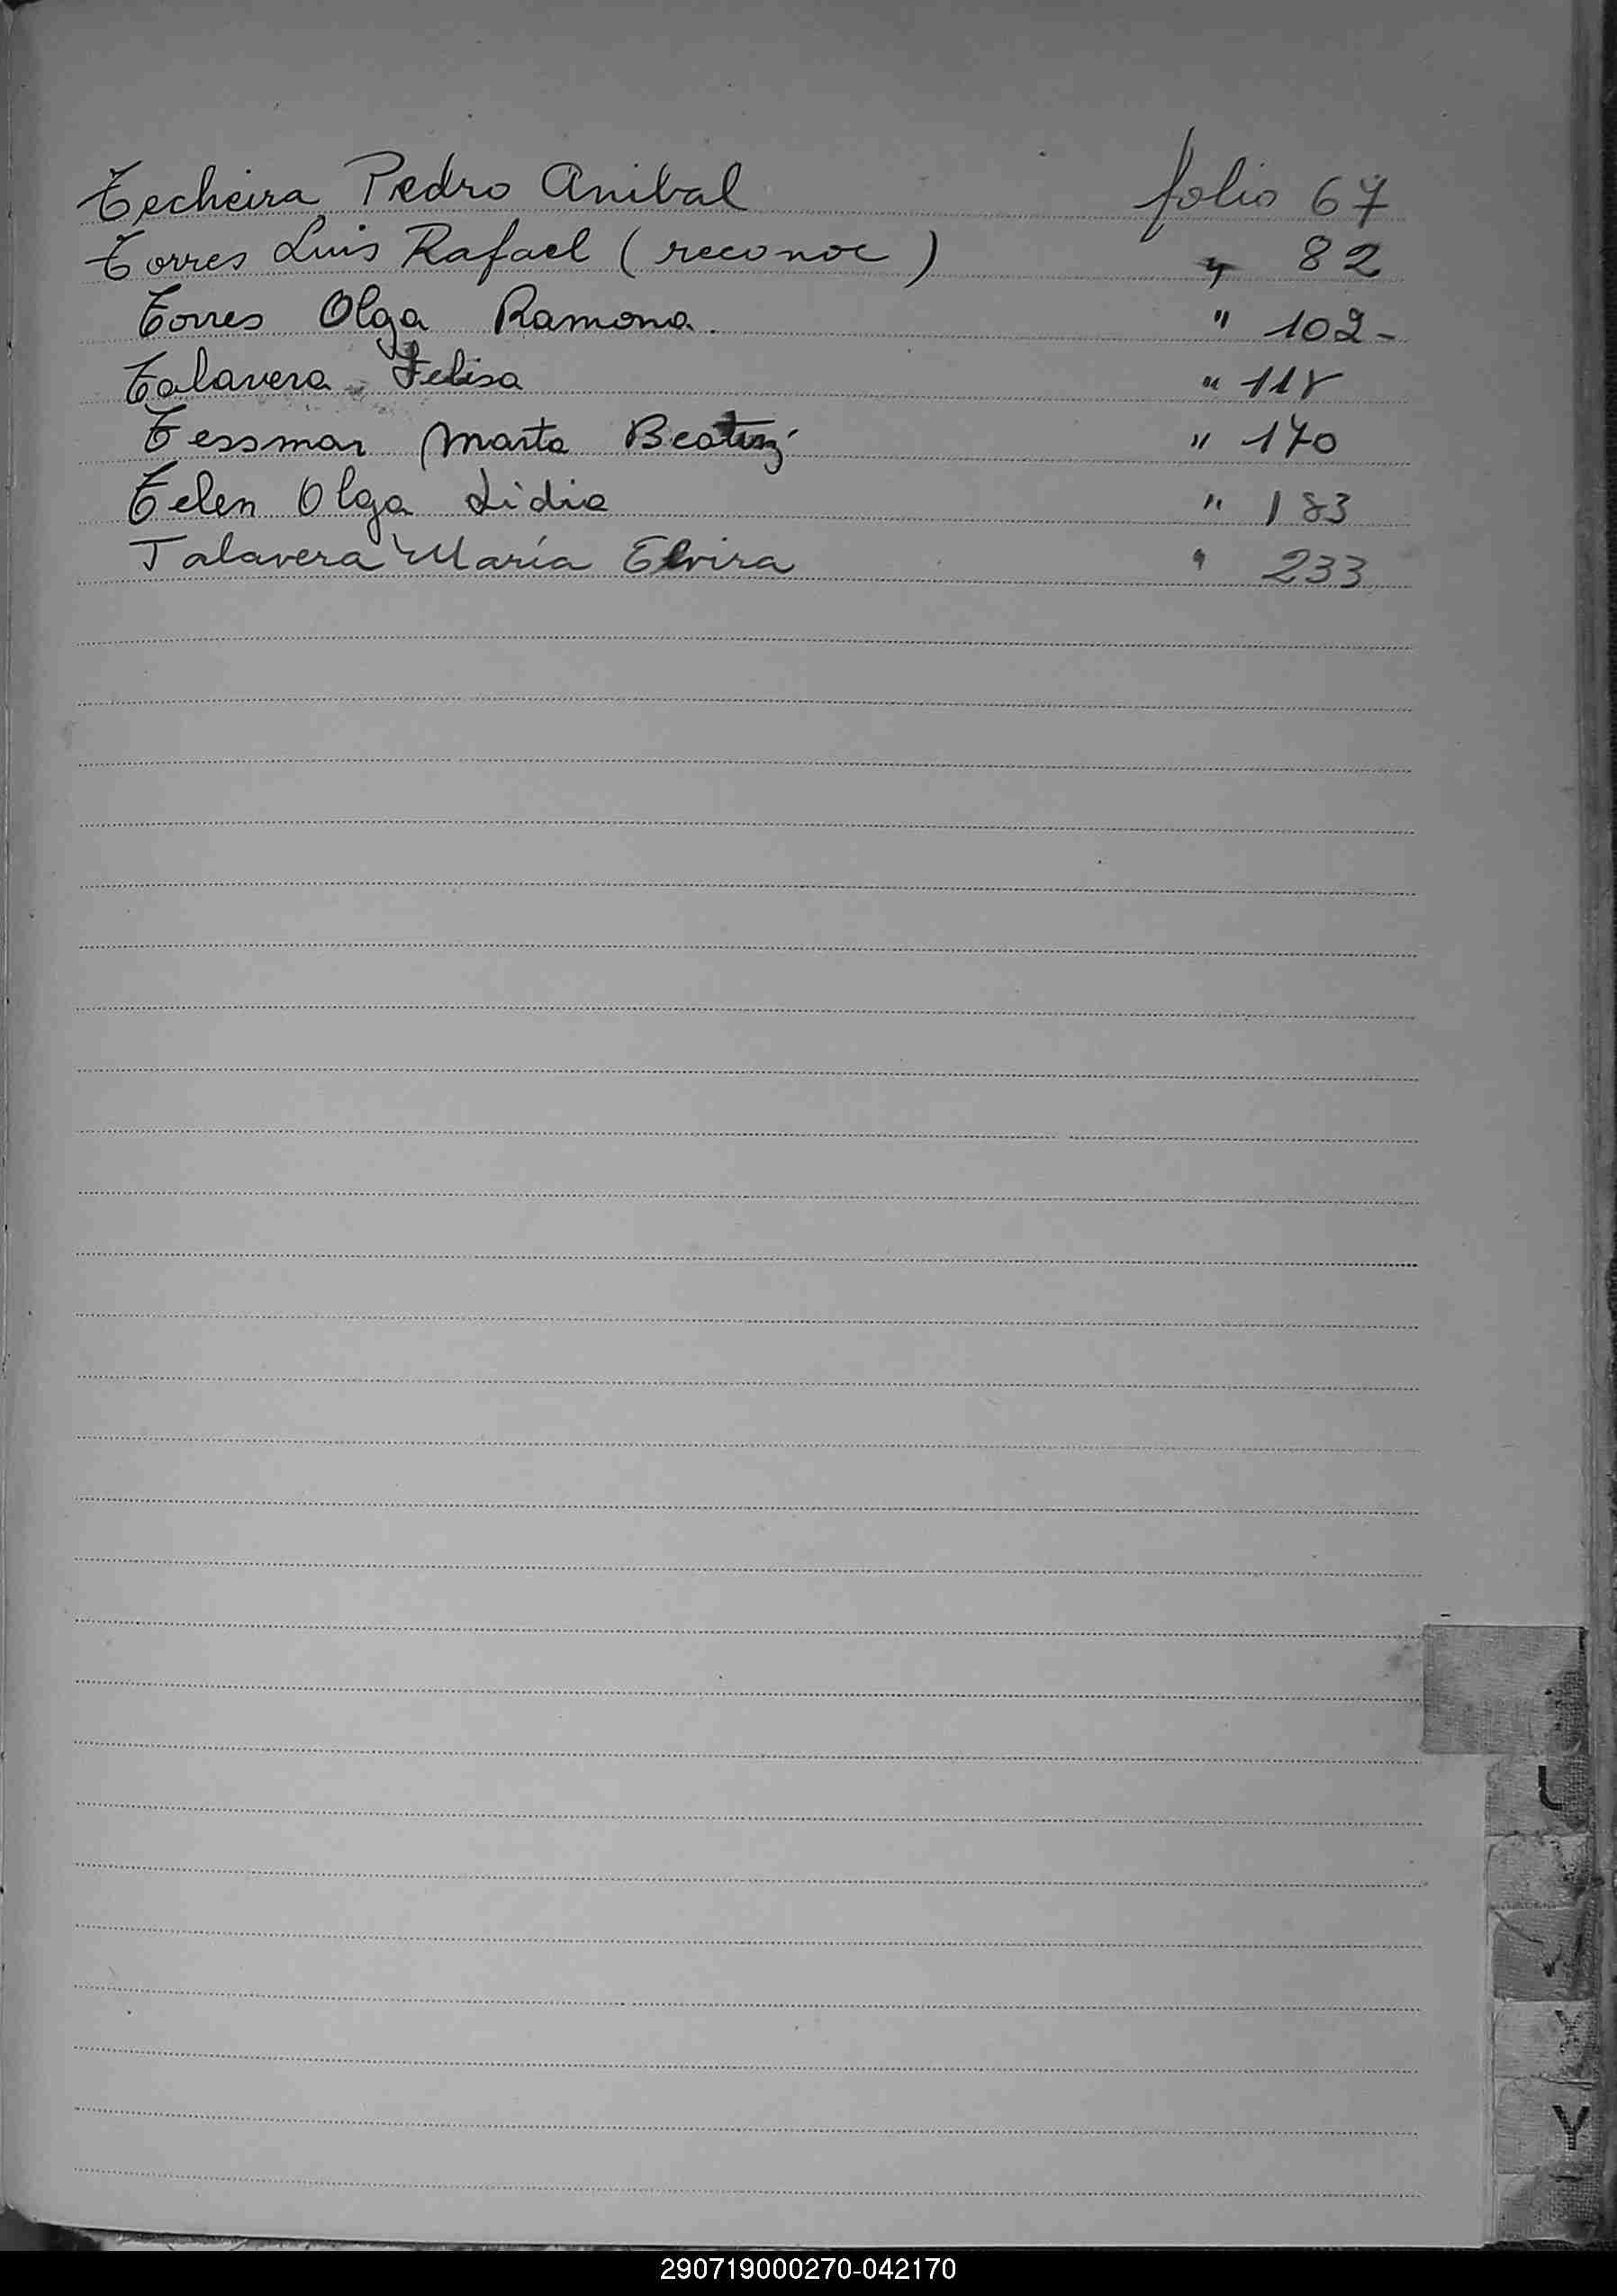 Techeira Pedro Anibal folio 67
Torres Luis Rafael (reconoc) " 82
Torres Olga Ramona. " 102-
Talavera Felisa " 118
Tessmar Marta Beatriz " 170
Telen Olga Lidia " 183
Talavera María Elvira " 233
U
Y
290719000270-042170